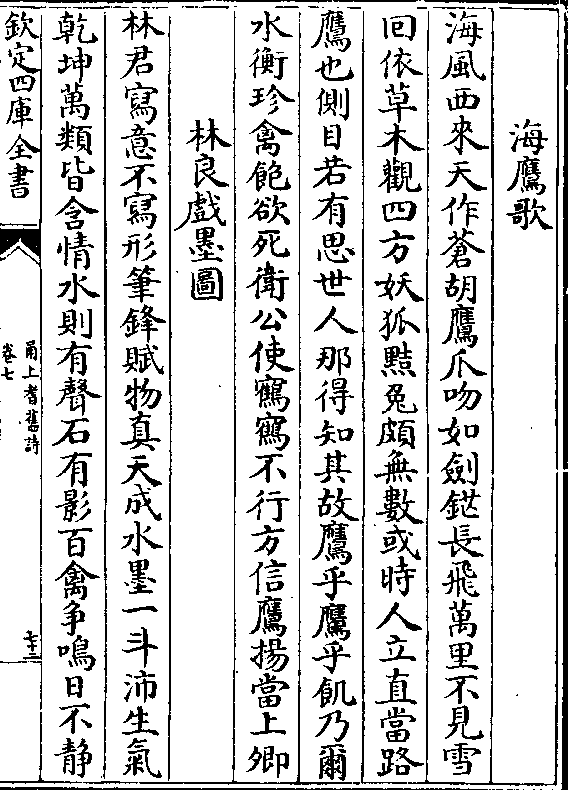 海鷹歌
海風西來天作蒼胡鷹爪吻如劍鋩長飛萬里不見雪
回依草木觀四方妖狐黠兔頗無數或時人立直當路
鷹也側目若有思世人那得知其故鷹乎鷹乎飢乃爾
水衡珍禽飽欲死衛公使鶴鶴不行方信鷹揚當上卿
林良戲墨圖
林君寫意不寫形筆鋒賦物真天成水墨一斗沛生氣
乾坤萬類皆含情水則有聲石有影百禽争鳴日不靜
欽定四庫全書
甬上耆舊詩
卷七
七十三